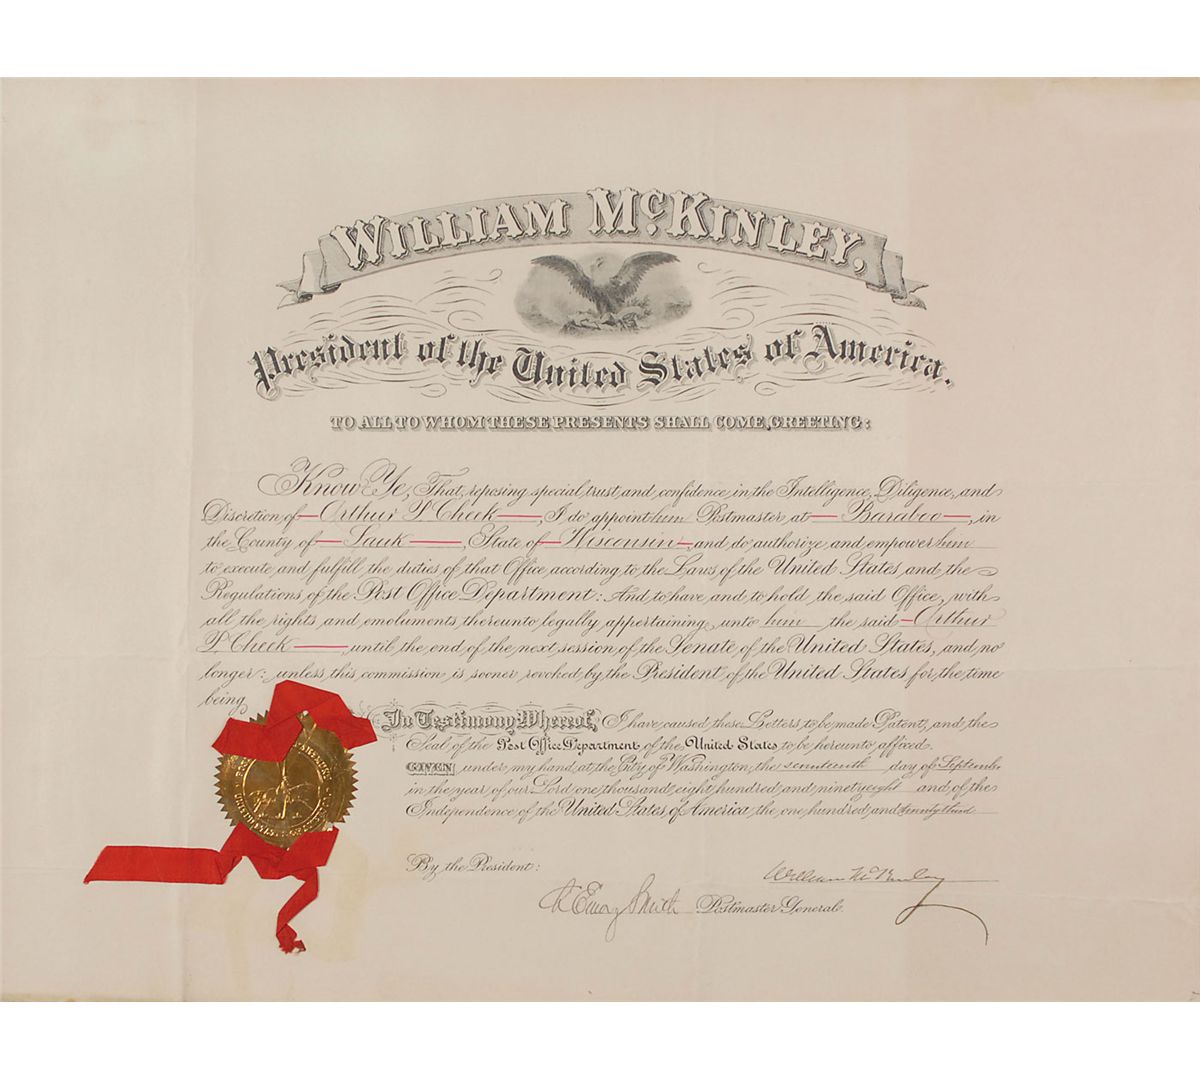 WILLIAM McKINLEY,
President of the United States of America.
TO ALL TO WHOM THESE PRESENTS SHALL COME, GREETING:
Know Ye, That, reposing special trust and confidence in the Intelligence, Diligence, and
Discretion of Arthur P. Cheek, I do appoint him Postmaster at Baraboo, in
the County of Sauk, State of Wisconsin, and do authorize and empower him
to execute and fulfill the duties of that Office according to the Laws of the United States and the
Regulations of the Post Office Department: And to have and to hold the said Office, with
all the rights and emoluments thereunto legally appertaining unto him the said Arthur
P. Cheek, until the end of the next session of the Senate of the United States, and no
longer: unless this commission is sooner revoked by the President of the United States for the time
being.
In Testimony Whereof, I have caused these Letters to be made Patent, and the
Seal of the Post Office Department of the United States to be hereunto affixed.
GIVEN under my hand, at the City of Washington, the seventeenth day of September
in the year of our Lord one thousand eight hundred and ninety eight and of the
Independence of the United States of America the one hundred and twenty third
By the President:
William McKinley
Ch Emory Smith Postmaster General.